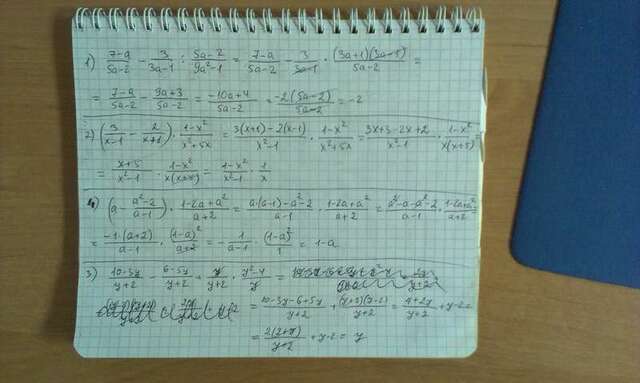 1) (7-a)/(5a-2) - 3/(3a-1) : (5a-2)/(9a²-1) = (7-a)/(5a-2) - 3/(3a-1) · (3a+1)(3a-1)/(5a-2) =
= (7-a)/(5a-2) - (9a+3)/(5a-2) = (-10a+4)/(5a-2) = -2(5a-2)/(5a-2) = -2
2) (3/(x-1) - 2/(x+1)) · (1-x²)/(x²+5x) = (3(x+1)-2(x-1))/(x²-1) · (1-x²)/(x²+5x) = (3x+3-2x+2)/(x²-1) · (1-x²)/(x(x+5)) =
= (x+5)/(x²-1) · (1-x²)/(x(x+5)) = (1-x²)/(x²-1) · 1/x
4) (a - (a²-2)/(a-1)) · (1-2a+a²)/(a+2) = (a(a-1)-a²-2)/(a-1) · (1-2a+a²)/(a+2) = (a²-a-a²-2)/(a-1) · (1-2a+a²)/(a+2)
= -1·(a+2)/(a-1) · (1-a)²/(a+2) = -1/(a-1) · (1-a)²/1 = 1-a
3) (10-3y)/(y+2) - (6-5y)/(y+2) + y/(y+2) · (y²-4)/y =
= (10-3y-6+5y)/(y+2) + (y+2)(y-2)/(y+2) = (4+2y)/(y+2) + y-2 =
= 2(2+y)/(y+2) + y-2 = y